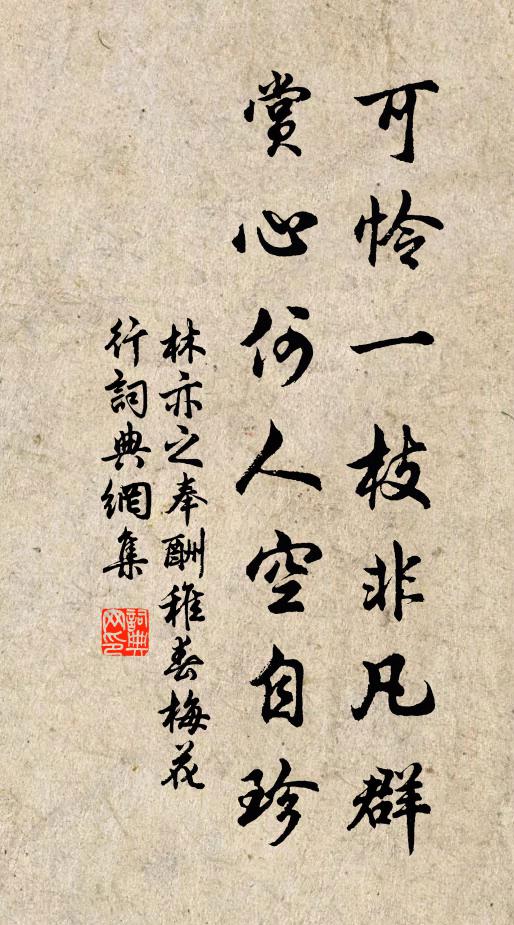 可怜一枝非凡群
賞心何人空自珍
林亦之奉酬稚春梅花
行詞典網集
詞典
网印